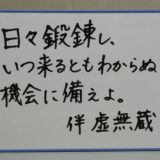 日々鍛錬し、
いつ来るともわからぬ
機会に備えよ。
伴 虚無蔵